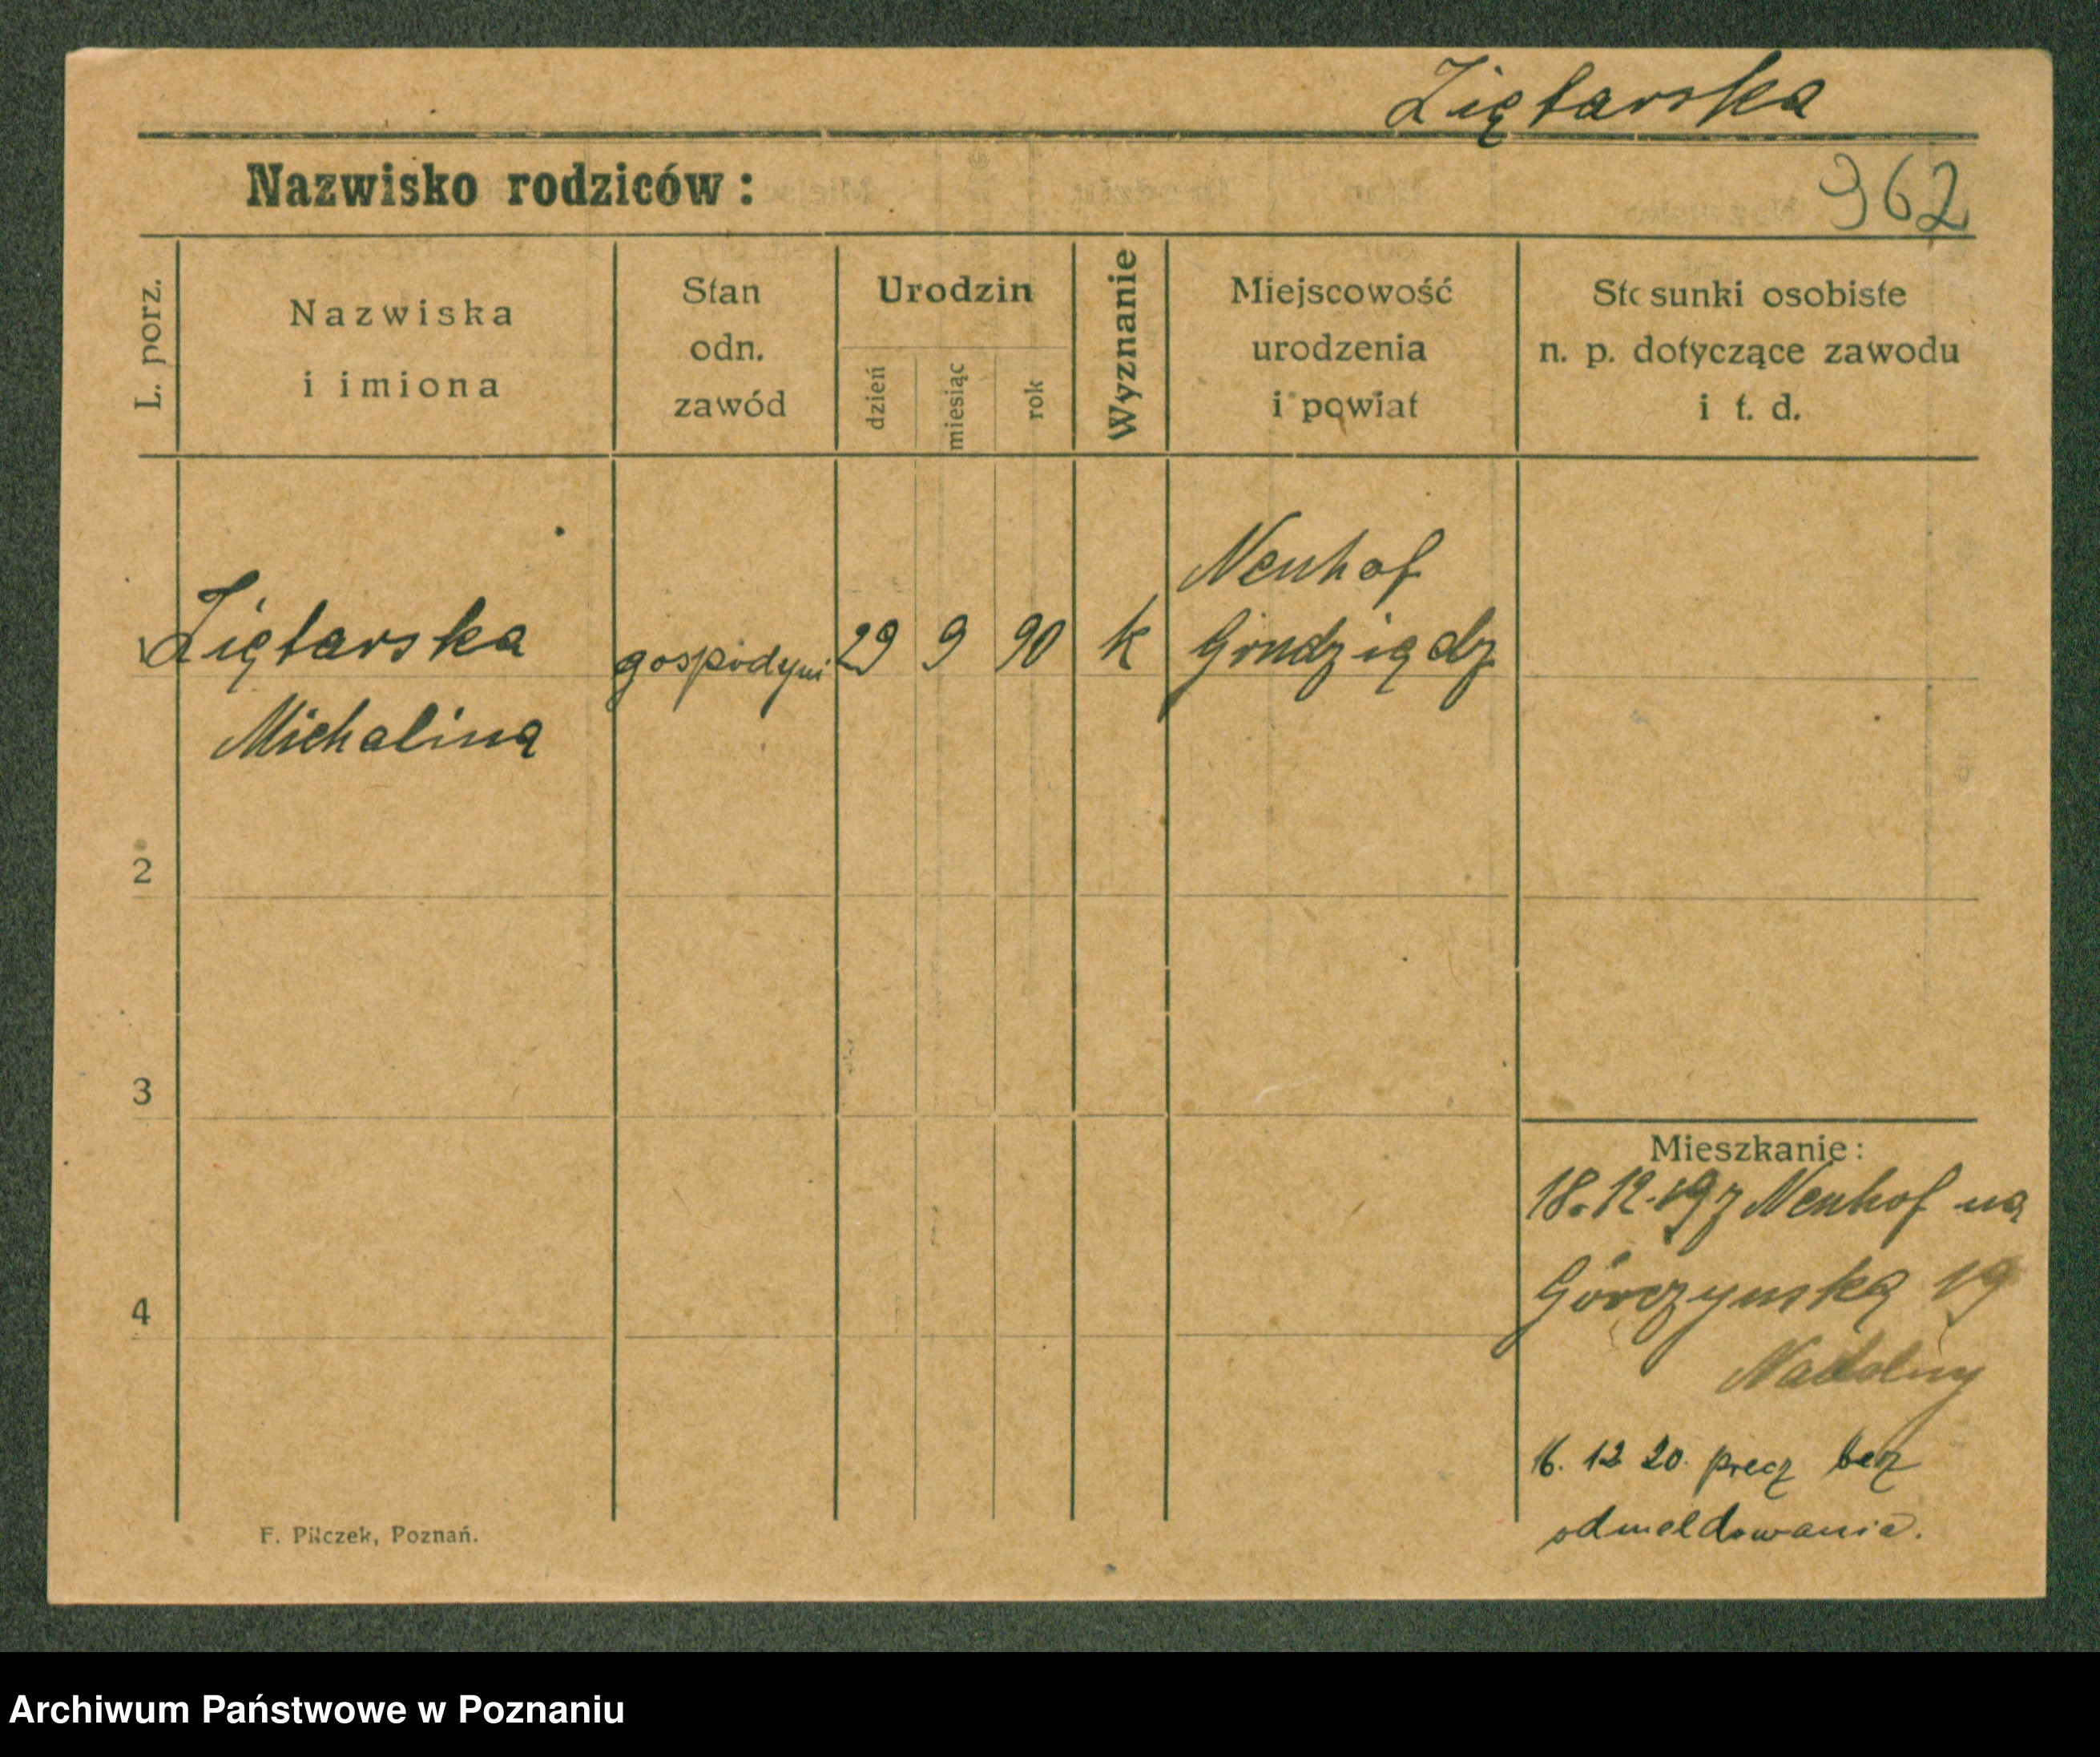 Ziętarska
Nazwisko rodziców:
962
L. porz.
Nazwiska
i imiona
Stan
odn.
zawód
Urodzin
dzień
miesiąc
rok
Wyznanie
Miejscowość
urodzenia
i powiat
Stosunki osobiste
n. p. dotyczące zawodu
i t. d.
Ziętarska
Michalina
gospodyni
29
9
90
k
Neuhof
Grudziądz
2
3
4
Mieszkanie:
18.12.19 z Neuhof na
Górczyńską 19
Nadolny
16. 12 20. precz bez
odmeldowania.
F. Pilczek, Poznań.
Archiwum Państwowe w Poznaniu